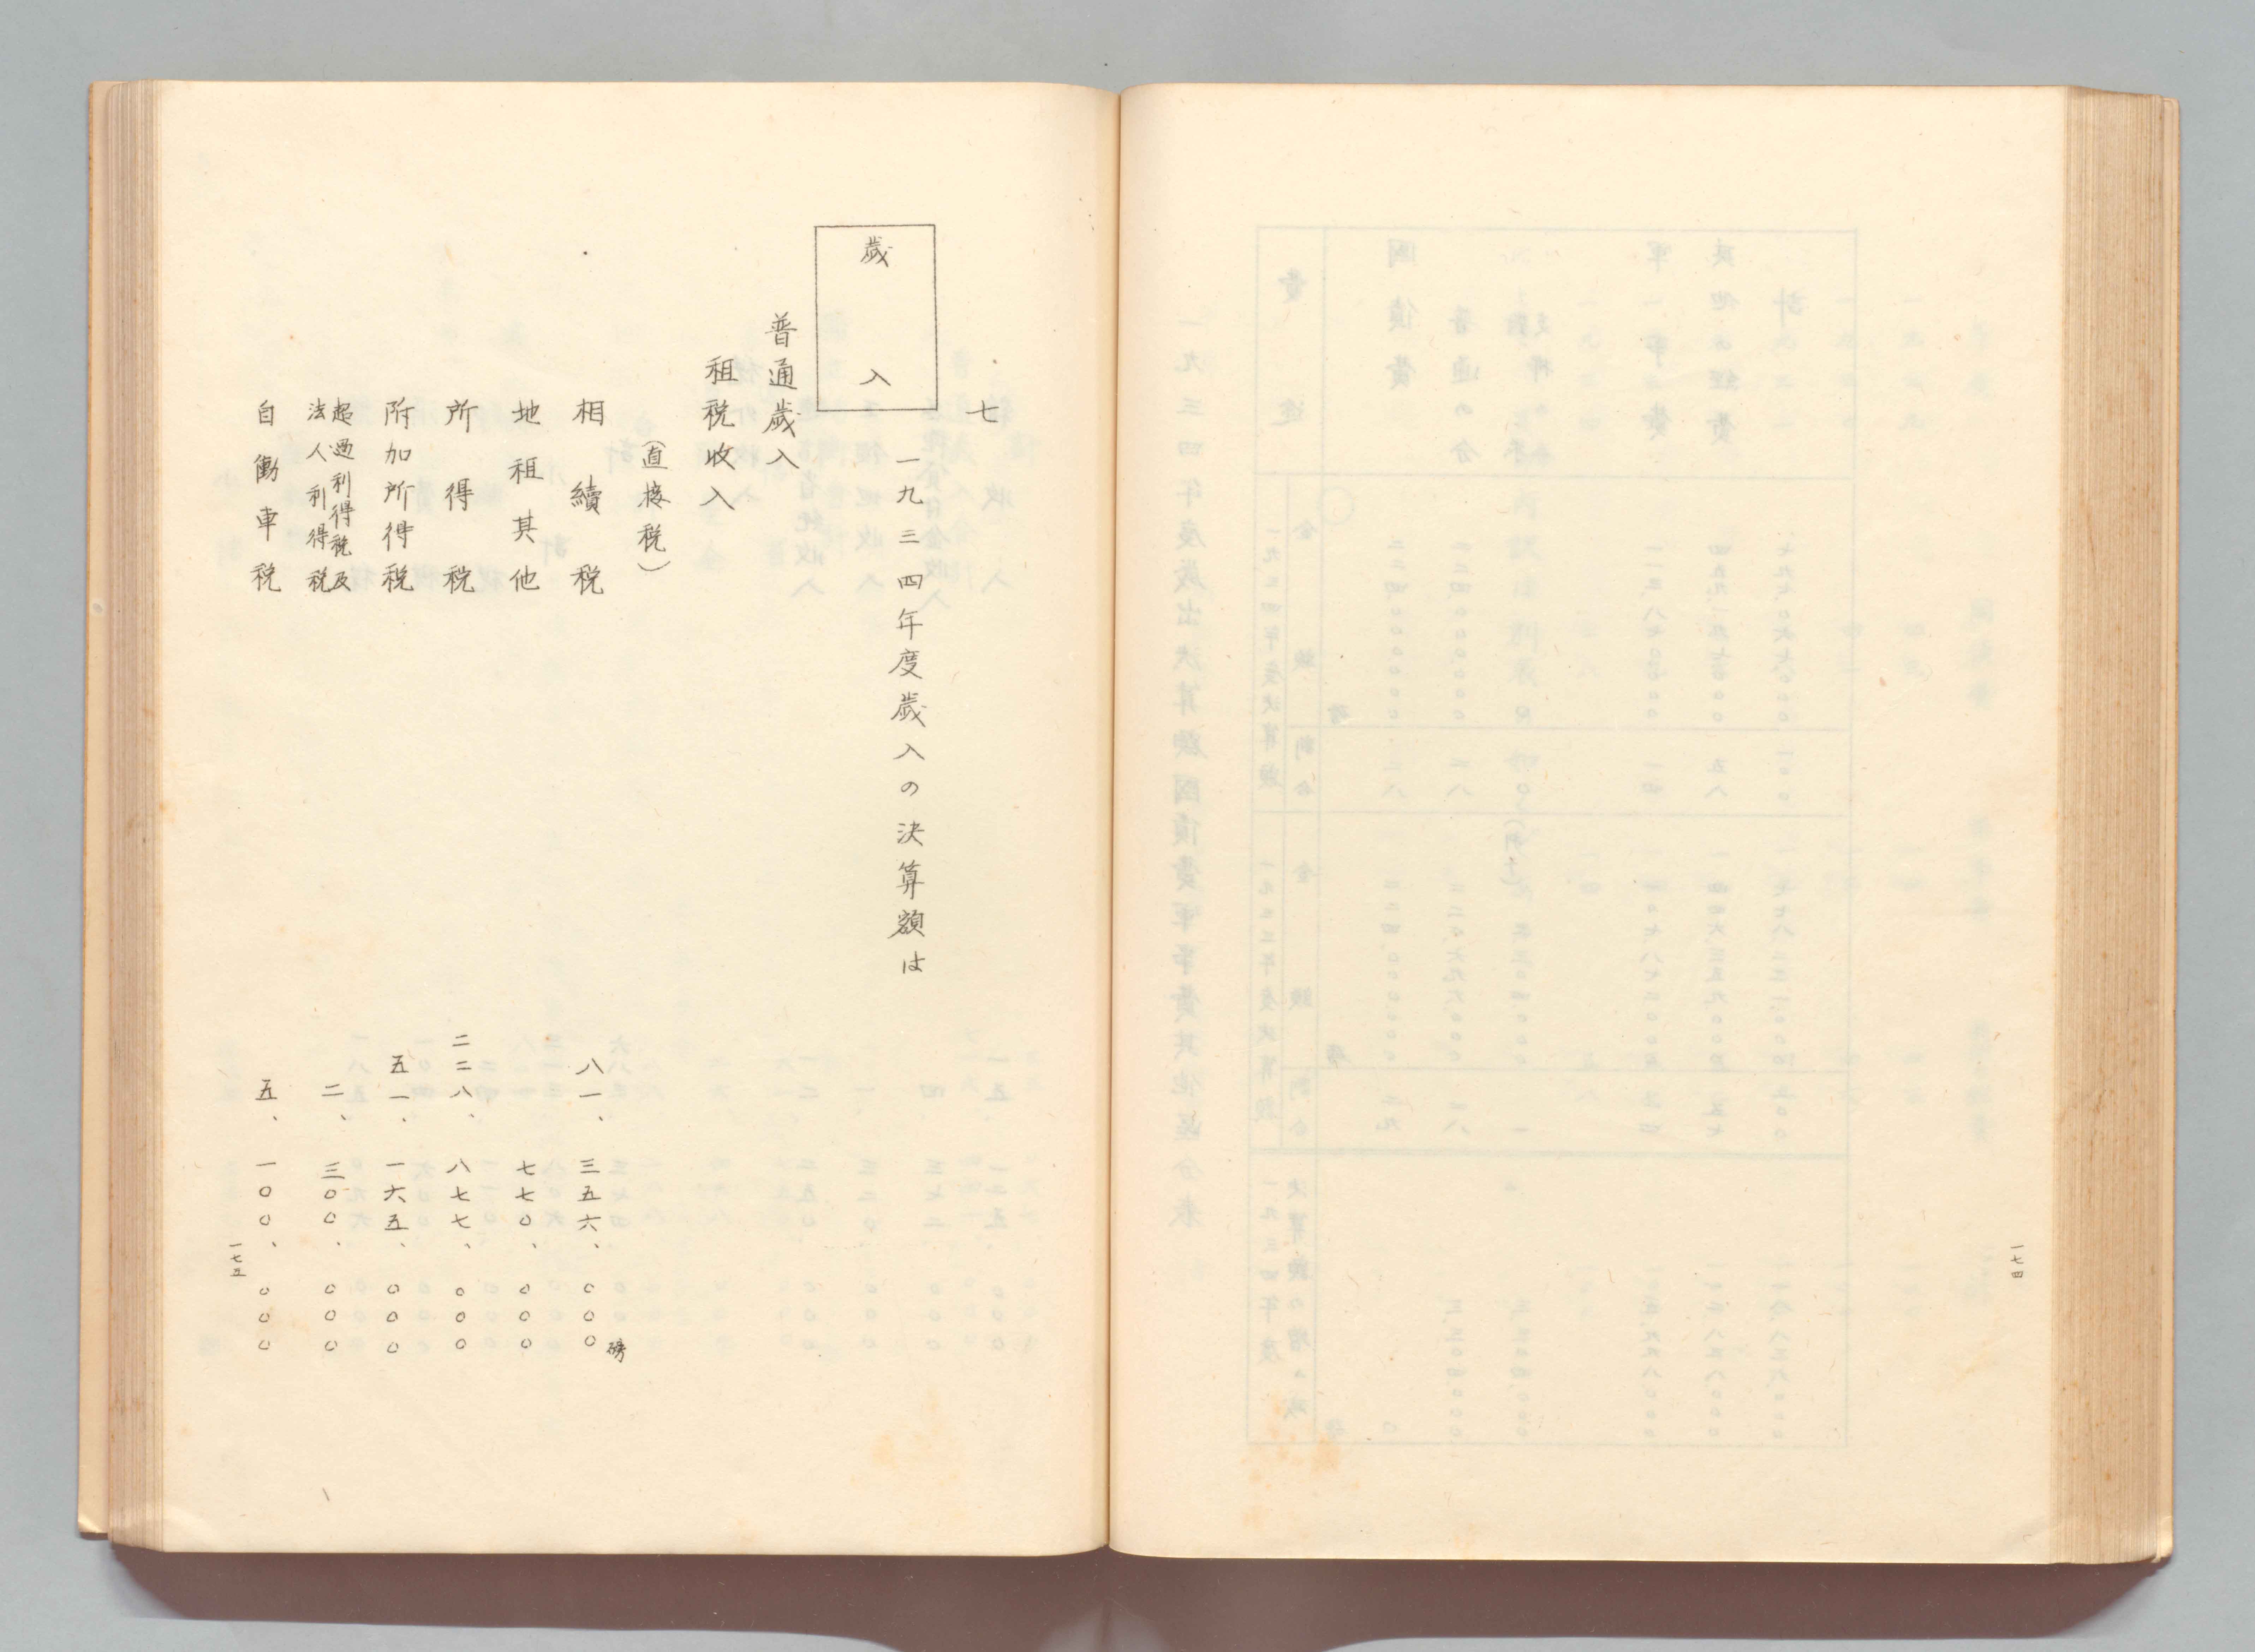 一七四
七
歳入
一九三四年度歳入の決算額は
普通歳入
租税收入
(直接税)
磅
相續税 八一、三五六、〇〇〇
地租其他 七七〇、〇〇〇
所得税 二二八、八七七、〇〇〇
附加所得税 五一、一六五、〇〇〇
超過利得税及
法人利得税 二、三〇〇、〇〇〇
自働車税 五、一〇〇、〇〇〇
一七五